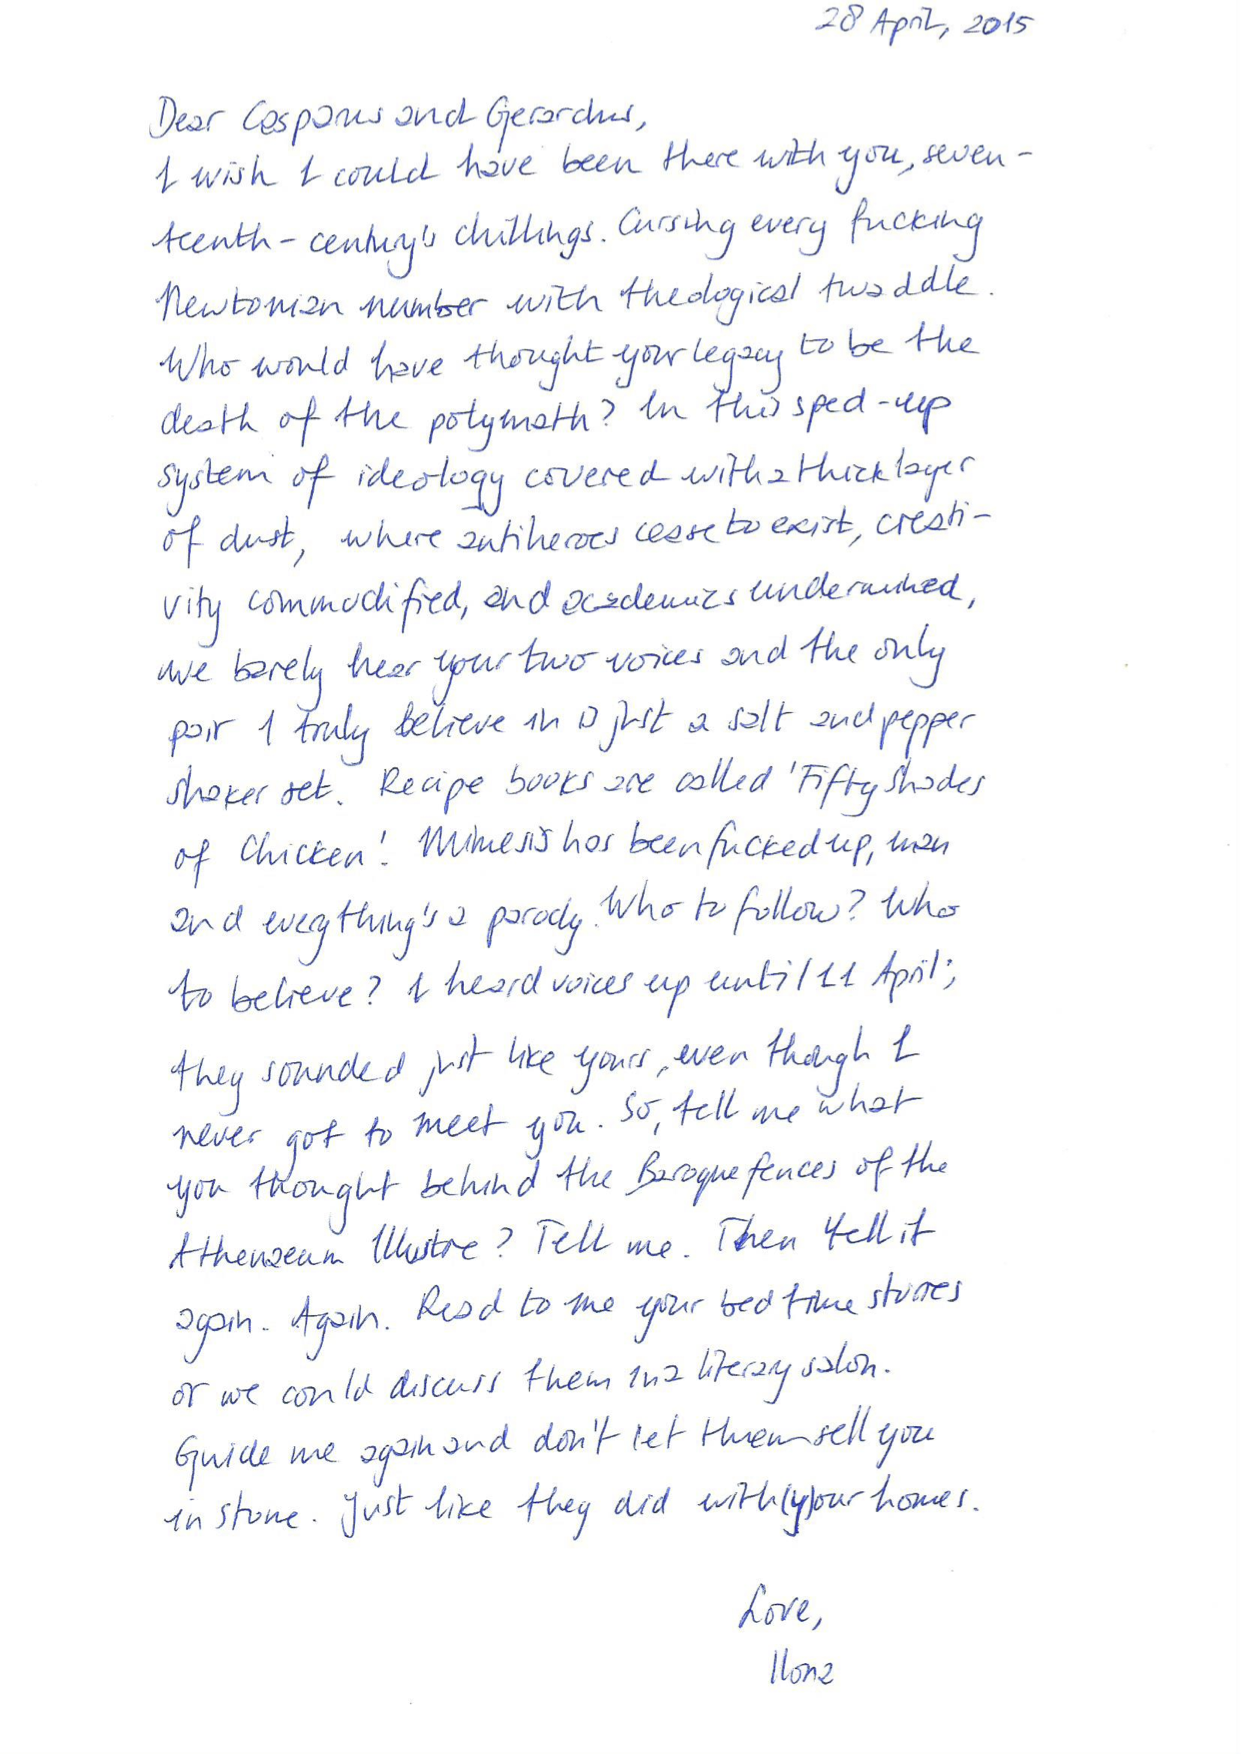 28 April, 2015
Dear Casparus and Gerardus,
I wish I could have been there with you, seven-
teenth-century's chillings. Cursing every fucking
Newtonian number with theological twaddle.
Who would have thought your legacy to be the
death of the polymath? In this sped-up
system of ideology covered with a thick layer
of dust, where antiheroes cease to exist, creati-
vity commodified, and academics undermined,
we barely hear your two voices and the only
pair I truly believe in is just a salt and pepper
shaker set. Recipe books are called 'Fifty Shades
of Chicken'. Mimesis has been fucked up, man
and everything's a parody. Who to follow? Who
to believe? I heard voices up until 11 April;
they sounded just like yours, even though I
never got to meet you. So, tell me what
you thought behind the Baroque fences of the
Athenaeum Illustre? Tell me. Then tell it
again. Again. Read to me your bed time stories
or we could discuss them in a literary salon.
Guide me again and don't let them sell you
in stone. Just like they did with (y)our homes.
Love,
Ilona